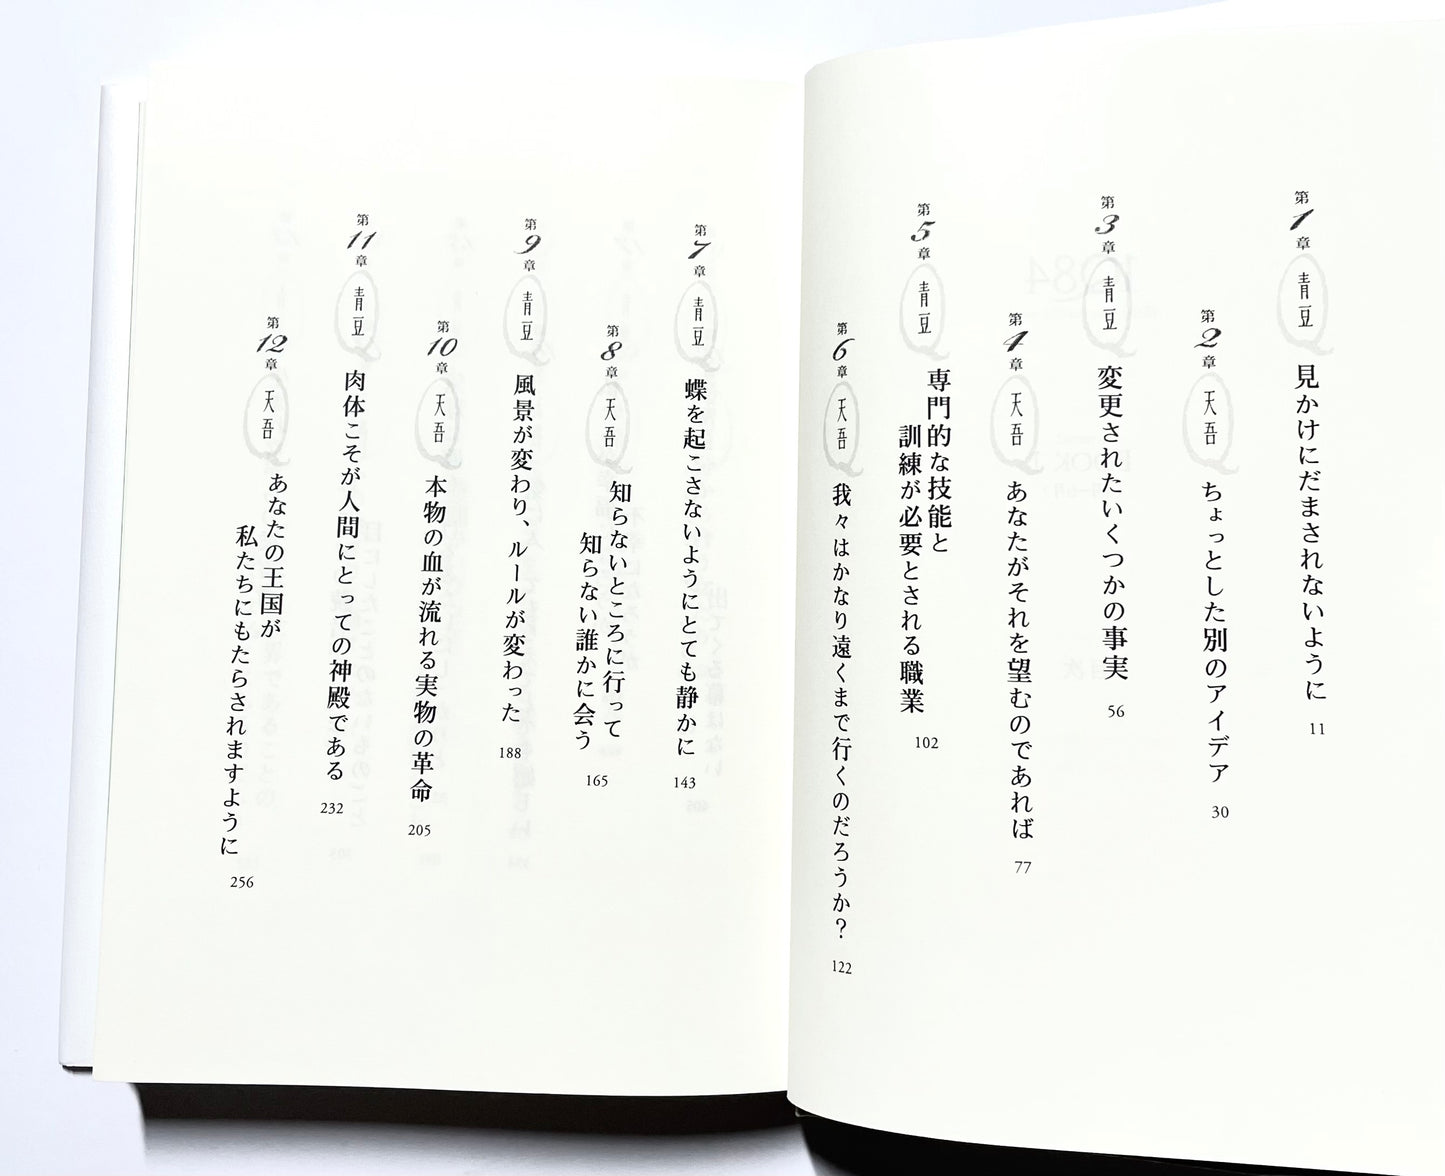 第1章 青豆 見かけにだまされないように 11
第2章 天吾 ちょっとした別のアイデア 30
第3章 青豆 変更されたいくつかの事実 56
第4章 天吾 あなたがそれを望むのであれば 77
第5章 青豆 専門的な技能と
訓練が必要とされる職業 102
第6章 天吾 我々はかなり遠くまで行くのだろうか? 122
第7章 青豆 蝶を起こさないようにとても静かに 143
第8章 天吾 知らないところに行って
知らない誰かに会う 165
第9章 青豆 風景が変わり、ルールが変わった 188
第10章 天吾 本物の血が流れる実物の革命 205
第11章 青豆 肉体こそが人間にとっての神殿である 232
第12章 天吾 あなたの王国が
私たちにもたらされますように 256